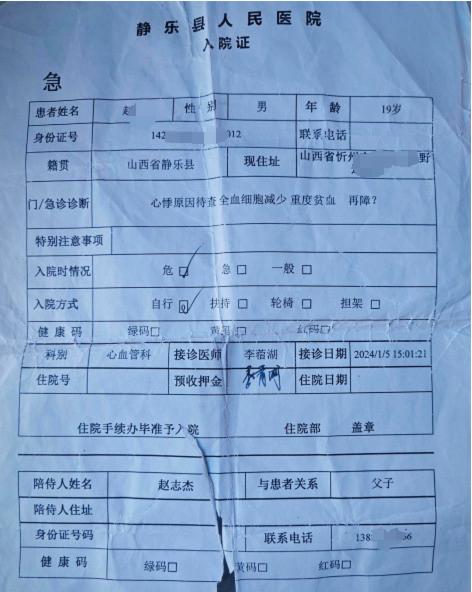 静乐县人民医院
入院证
急
患者姓名 赵 性别 男 年龄 19岁
身份证号 142 012 联系电话
籍贯 山西省静乐县 现住址 山西省忻州 野
门/急诊诊断 心悸原因待查 全血细胞减少 重度贫血 再障？
特别注意事项
入院时情况 危□ 急□ 一般□
入院方式 自行□ 扶持□ 轮椅□ 担架□
健康码 绿码□ 黄码□ 红码□
科别 心血管科 接诊医师 李蓿湖 接诊日期 2024/1/5 15:01:21
住院号 预收押金 住院日期
住院手续办毕准予入院 住院部 盖章
陪侍人姓名 赵志杰 与患者关系 父子
陪侍人住址
身份证号码 联系电话 138 66
健康码 绿码□ 黄码□ 红码□